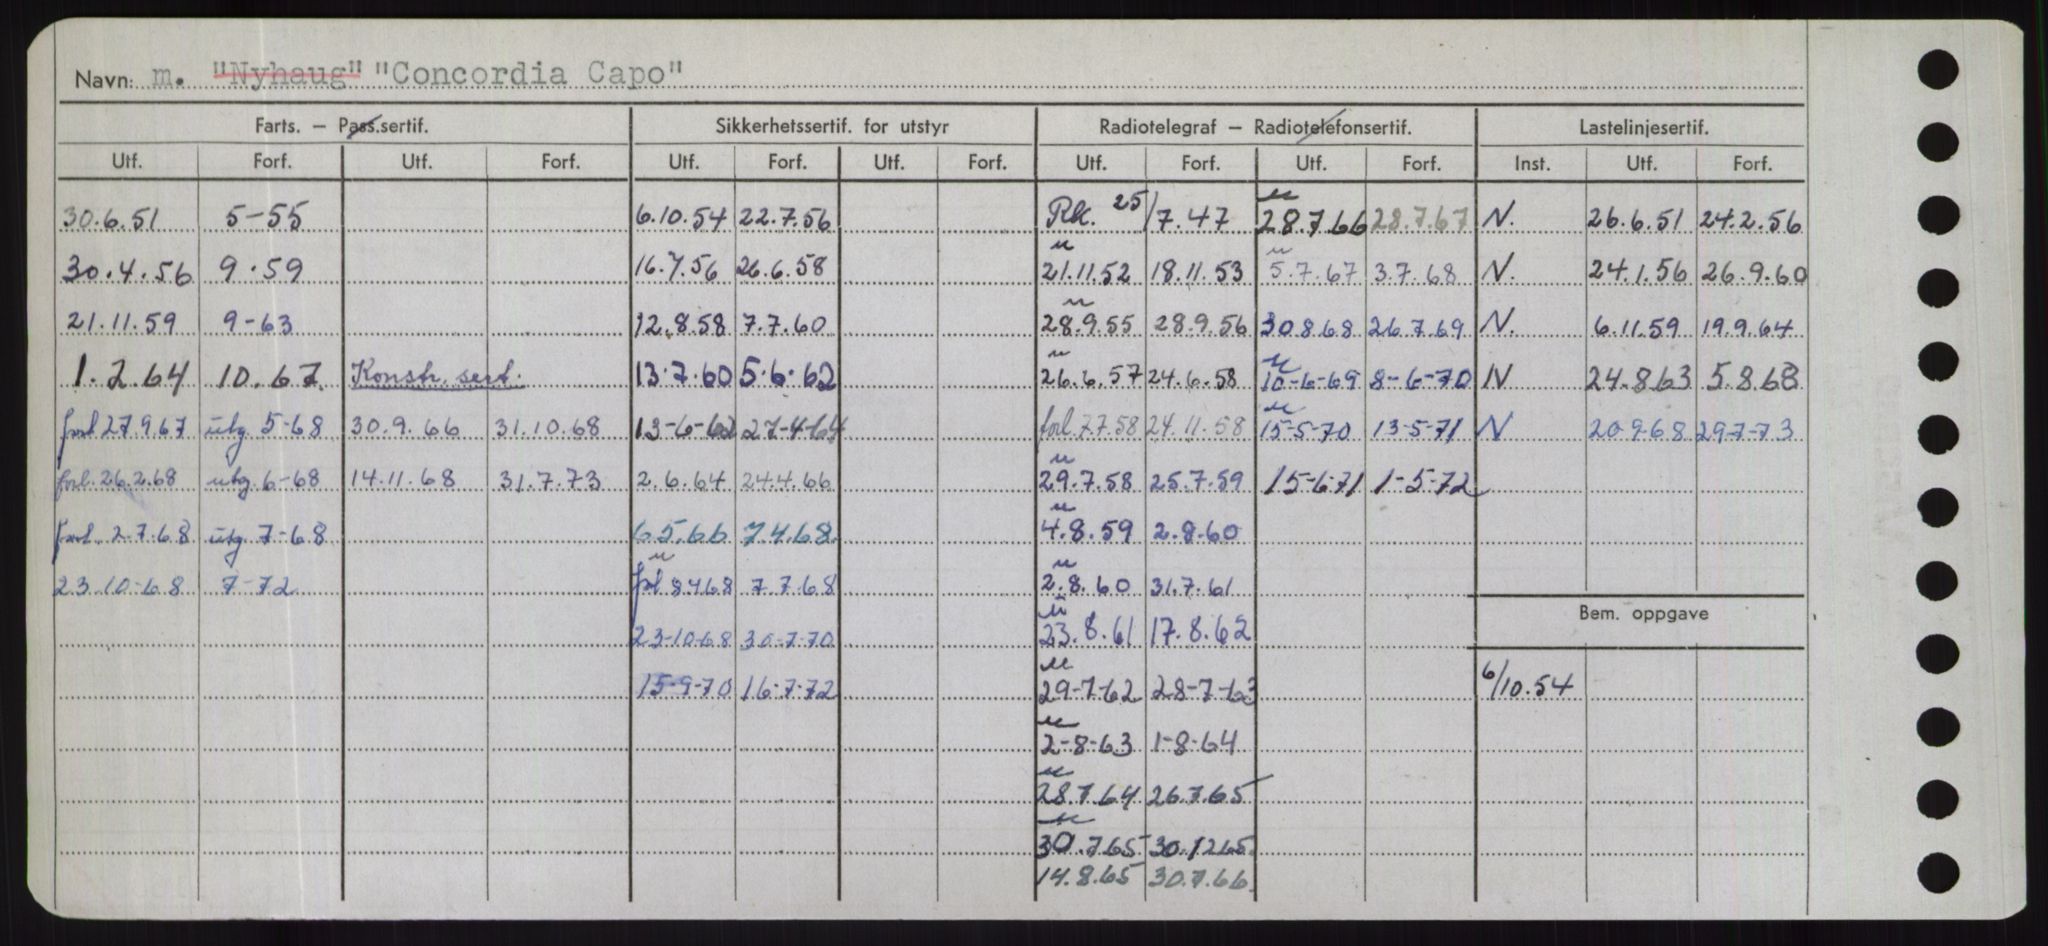 Navn: m. "Nyhaug" "Concordia Capo"
Farts. – Pass.sertif. Sikkerhetssertif. for utstyr Radiotelegraf – Radiotelefonsertif. Lastelinjesertif.
Utf. Forf. Utf. Forf. Utf. Forf. Utf. Forf. Utf. Forf. Utf. Forf. Inst. Utf. Forf.
30.6.51 5-55 6.10.54 22.7.56 Rk. 25/7.47 28.7.66 28.7.67 N. 26.6.51 24.2.56
30.4.56 9.59 16.7.56 26.6.58 21.11.52 18.11.53 5.7.67 3.7.68 N. 24.1.56 26.9.60
21.11.59 9-63 12.8.58 7.7.60 28.9.55 28.9.56 30.8.68 26.7.69 N. 6.11.59 19.9.64
1.2.64 10.67. Konstr. sert. 13.7.60 5.6.62 26.6.57 24.6.58 10-6-69 8-6-70 N 24.8.63 5.8.68
forl 27.9.67 utg. 5-68 30.9.66 31.10.68 13-6-62 27-4-64 forl. 7.7.58 24.11.58 15-5-70 13-5-71 N 20.9.68 29.7-73
forl. 26.2.68 utg. 6-68 14.11.68 31.7.73 2.6.64 24.4.66 29.7.58 25.7.59 15-6-71 1-5-72
forl. 2.7.68 utg. 7-68 6.5.66 7.4.68. 4.8.59 2.8.60
23.10-68 7-72 forl 8.4.68 7.7.68 2.8.60 31.7.61
23-10-68 30-7-70 23.8.61 17.8.62
Bem. oppgave
15-9-70 16-7-72 29-7-62 28-7-63 6/10.54
2-8-63 1-8-64
28.7.64 26.7.65
30.7.65 30.12.65.
14.8.65 30.7.66.